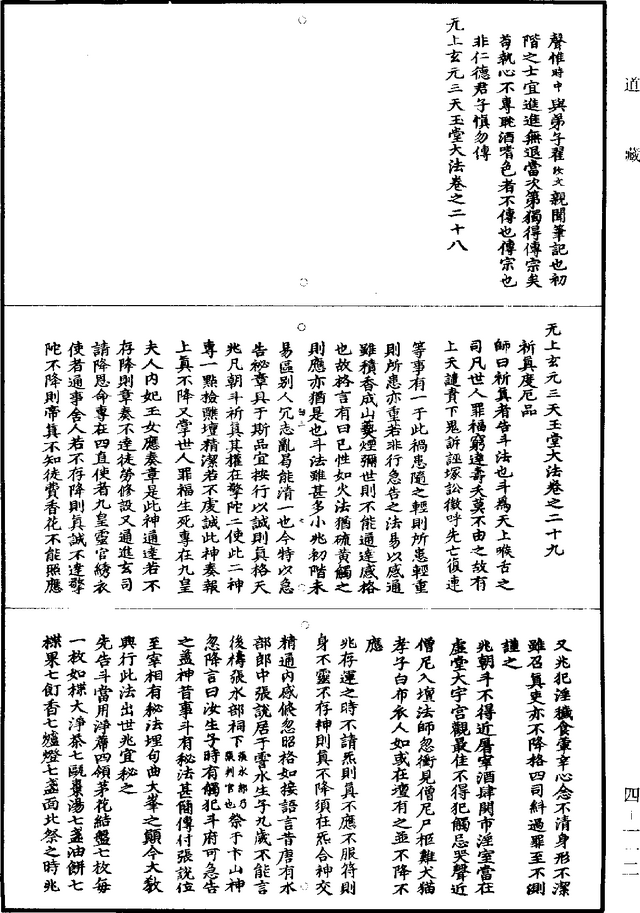 道藏
聲惟時中與弟子翟汝文親聞筆記也初
階之士宜進進無退當次第獨得傳宗矣
茍執心不專耽酒嗜色者不傳也傳宗也
非仁德君子慎勿傳
无上玄元三天玉堂大法卷之二十八
无上玄元三天玉堂大法卷之二十九
祈真度厄品
師曰祈真者告斗法也斗為天上喉舌之
司凡世人罪福窮達壽夭莫不由之故有
上天譴責下鬼訴誣塚訟徵呼先亡復連
等事有一于此禍患隨之輕則所患輕重
則所患亦重若非行急告之法易以感通
雖積香成山藝煙彌世則不能通達感格
也故格言有曰已性如火法猶硫黄觸之
則應亦猶是也斗法雖甚多小兆初階未
易區別人冗志亂曷能清一也今特以急
告祕章具于斯品宜按行以誠則真格天
兆凡朝斗祈真其權在擎陀二使此二神
專一點檢醮壇精潔若不虔誠此神奏報
上真不降又掌世人罪福生死專在九皇
夫人内妃玉女應奏章是此神通達若不
存降則章奏不達徒勞修設又通進玄司
請降恩命專在四直使者九皇靈官綉衣
使者通事舍人若不存降則真誠不達擎
陀不降則帝真不知徒費香花不能照應
又兆犯淫穢食葷辛心念不清身形不潔
雖召真吏亦不降格四司糾過罪至不測
謹之
兆朝斗不得近屠宰酒肆閙市淫室當在
虛堂大宇宮觀最佳不得犯觸忌哭聲近
僧尼入壇法師忽衝見僧尼尸柩雞犬猫
孝子白布衣人如或在壇有之並不降不
應
兆存運之時不請炁則真不應不服符則
身不靈不存神則真不降須在炁合神交
精通内感倐忽昭格如接語言昔唐有水
部郎中張說居于霅水生子九歲不能言
後禱張水部祠下張水部乃張判官也祭于卞山神
忽降言曰汝生子時有觸犯斗府可急告
之蓋神昔事斗有秘法甚簡傳付張說位
至宰相有秘法埋句曲大峯之顛今大教
興行此法出世兆宜秘之
先告斗當用淨席四領茅花結盤七枚每
一枚如楪大淨茶七甌棗湯七盞油餅七
楪果七飣香七爐燈七盞面北祭之時兆
四－一一二